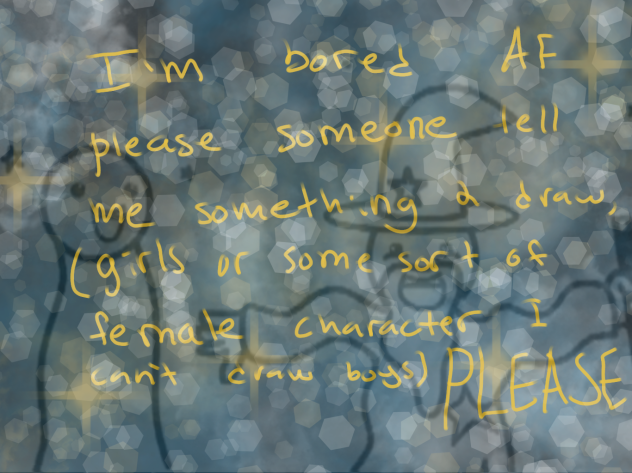 I'm bored AF
please someone tell
me something 2 draw,
(girls or some sort of
female character I
can't draw boys) PLEASE